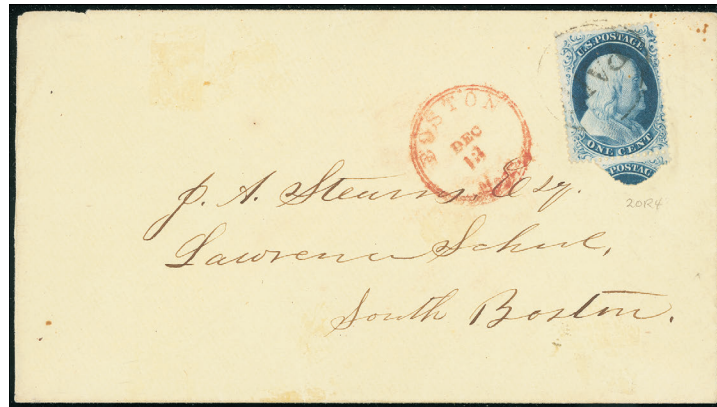 U.S. POSTAGE
ONE CENT
POSTAG
BOSTON
DEC
13
20R4
J. A. Stearns Esq.
Lawrence School,
South Boston.